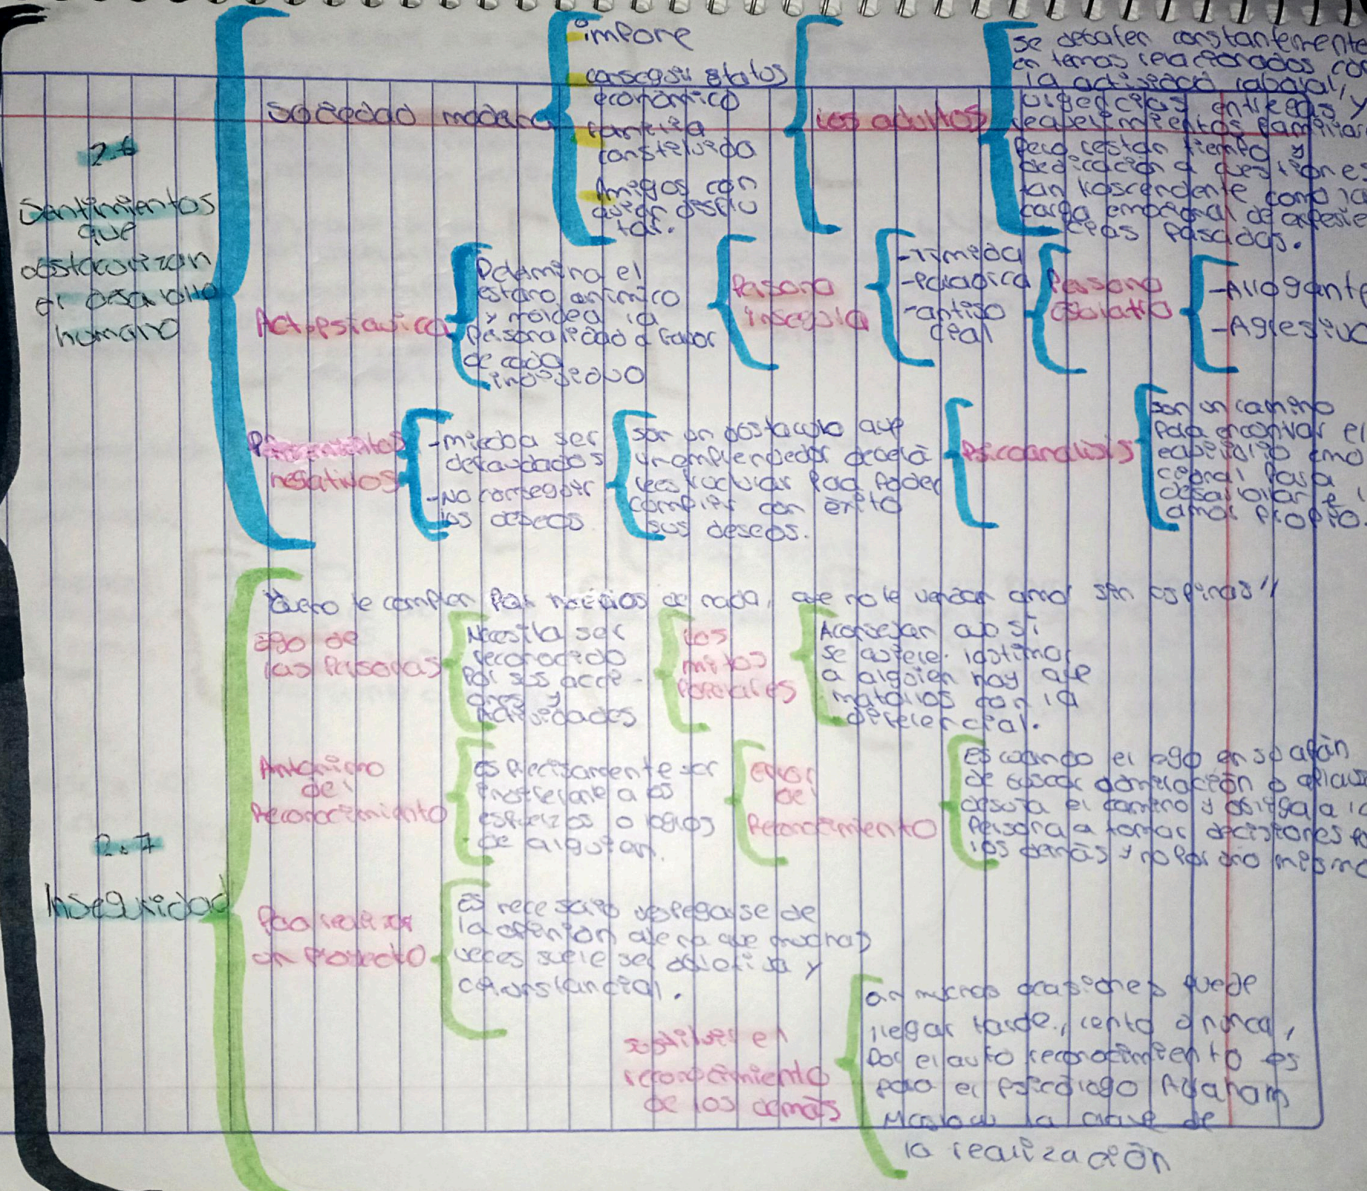 2.6
Sentimientos
que
obstaculizan
el desarrollo
humano
Sociedad moderna
impone
conseguir status
económico
familia
construida
Amigos con
quien disfru
tar.
los adultos
se detallen constantemente
en temas relacionados con
la actividad laboral,
entregas y
familiar
pero restan tiempo y
dedicación a questione
tan trascendente como la
carga emocional de
pasadas.
Act. psiquica
Determina el
estado animico
y moldea la
personalidad a favor
de cada
individuo
Persona
insegura
-Timida
-Paradica
-antiso
cial
Persona
-Arrogante
-Agresiva
Pensamientos
negativos
-miedo a ser
defraudados
-No conseguir
los deseos
son un obstaculo que
un emprendedor deberá
para poder
cumplir con exito
sus deseos.
Psicoanalisis
son un camino
para encontrar el
equilibrio emo
cional para
desarrollar el
amor propio.
2.7
Inseguridad
"Quero te compren por novios de nada, que no te vendan amor sin espinas"
ego de
las Personas
Necesita ser
reconocido
por sus acci
ones y
Actividades
Los
mitos
Populares
Aconsejan que si
se quiere lastimar
a alguien hay que
matarlos con la
diferencial.
Antonimo
del
Reconocimiento
es precisamente ser
indiferente a los
esfuerzos o logros
de alguien.
error
del
Reconocimiento
Es cuando el ego en su afán
de buscar adulación o aplauso
desvia el camino y obliga a la
persona a tomar decisiones p
los demás y no por uno mismo
Para realizar
un proyecto
Es necesario despegarse de
la opinión ajena que muchas
veces suele ser y
circunstancial.
en
reconocimiento
de los demás
en muchas ocasiones puede
llegar tarde, lento o nunca,
Por el auto reconocimiento es
para el psicólogo Abraham
Maslow la clave de
la realización